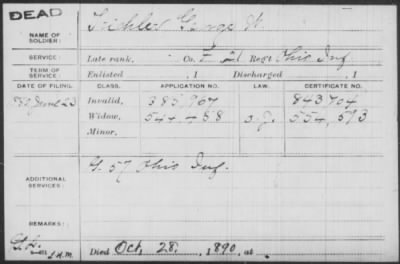 DEAD
NAME OF SOLDIER: George W.
SERVICE: Late rank, Co. F. 21 Regt Ohio Inf
TERM OF SERVICE: Enlisted , 1 Discharged , 1
DATE OF FILING. CLASS. APPLICATION NO. LAW. CERTIFICATE NO.
June 23 Invalid, 385,967 843704
Widow, 544488 554,593
Minor,
ADDITIONAL SERVICES: G. 57 Ohio Inf.
REMARKS:
Died Oct. 28, 1890, at